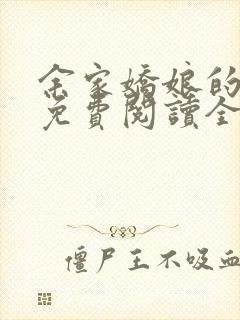 余家嬌娘的
免費閱讀全
僵尸王不吸血